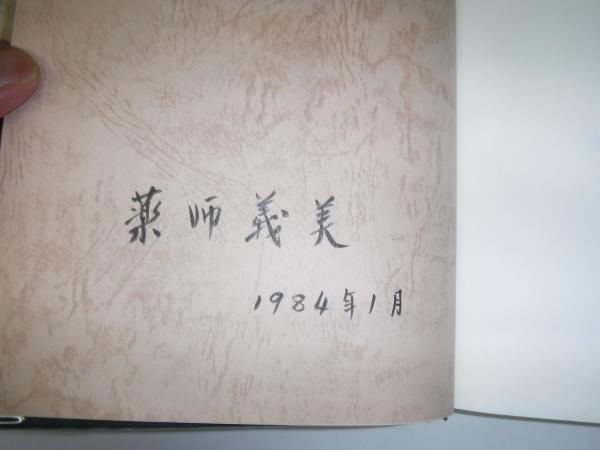 薬師義美
1984年1月